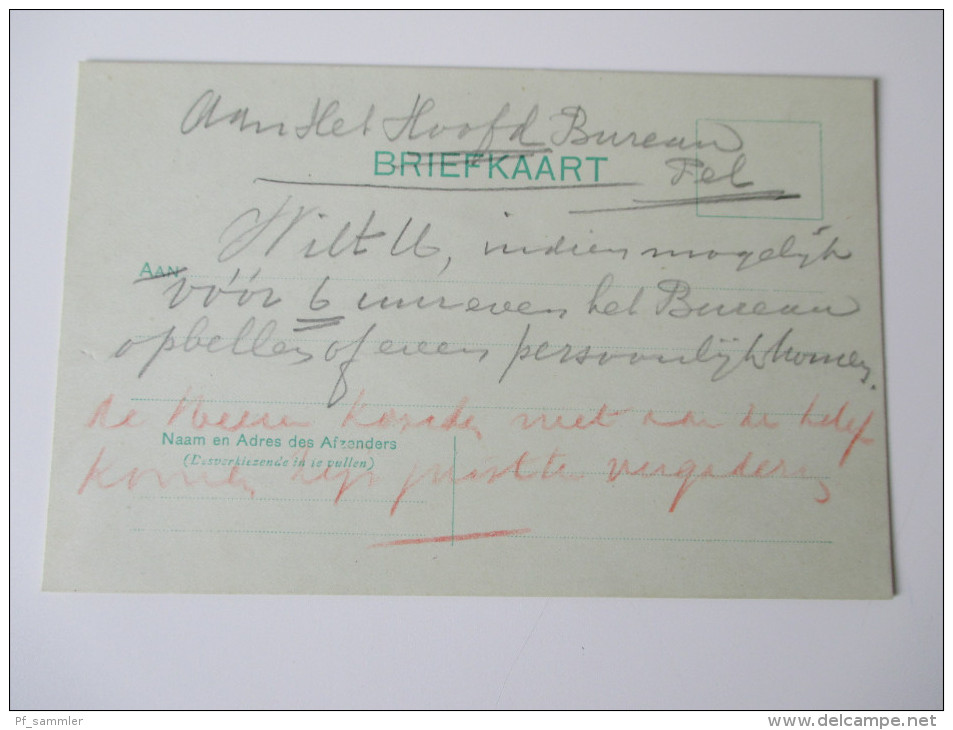 Aan Het Hoofd Bureau
BRIEFKAART
Tel
Wilt U, indien mogelijk
AAN
vóór 6 uur even het Bureau
opbellen of even persoonlijk komen.
de Heer niet aan de telef
Naam en Adres des Afzenders
(Desverkiezende in te vullen)
komen, vergadering
Pf_sammler
www.delcampe.net